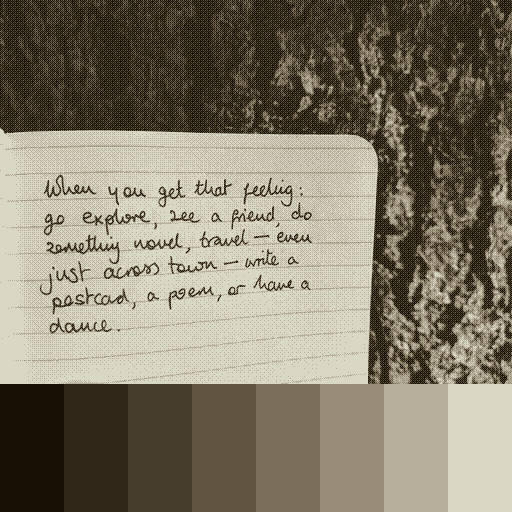 When you get that feeling:
go explore, see a friend, do
something novel, travel — even
just across town — write a
postcard, a poem, or have a
dance.